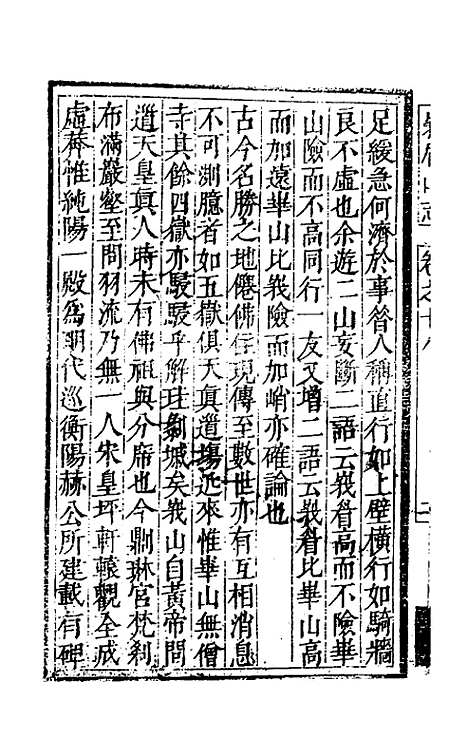 足緩急何濟於事昝人稱直行如上壁橫行如騎牆
良不虛也余遊二山妄斷二語云峩眷高而不險華
山險而不高同行一友又增二語云峩眷比華山高
而加遠華山比峩險而加峭亦確論也
古今名勝之地僊佛住現傳至數世亦有互相消息
不可測臆者如五嶽俱天真道塲近來惟華山無僧
寺其餘四嶽亦駸駸乎解珪剃城矣峩山自黃帝問
道天皇真人時未有佛祖與分席也今則琳宮梵刹
布滿嚴壑至問羽流乃無一人宋皇坪軒轅觀全成
虛菴惟純陽一殿爲明代巡衡陽赫公所建載有碑